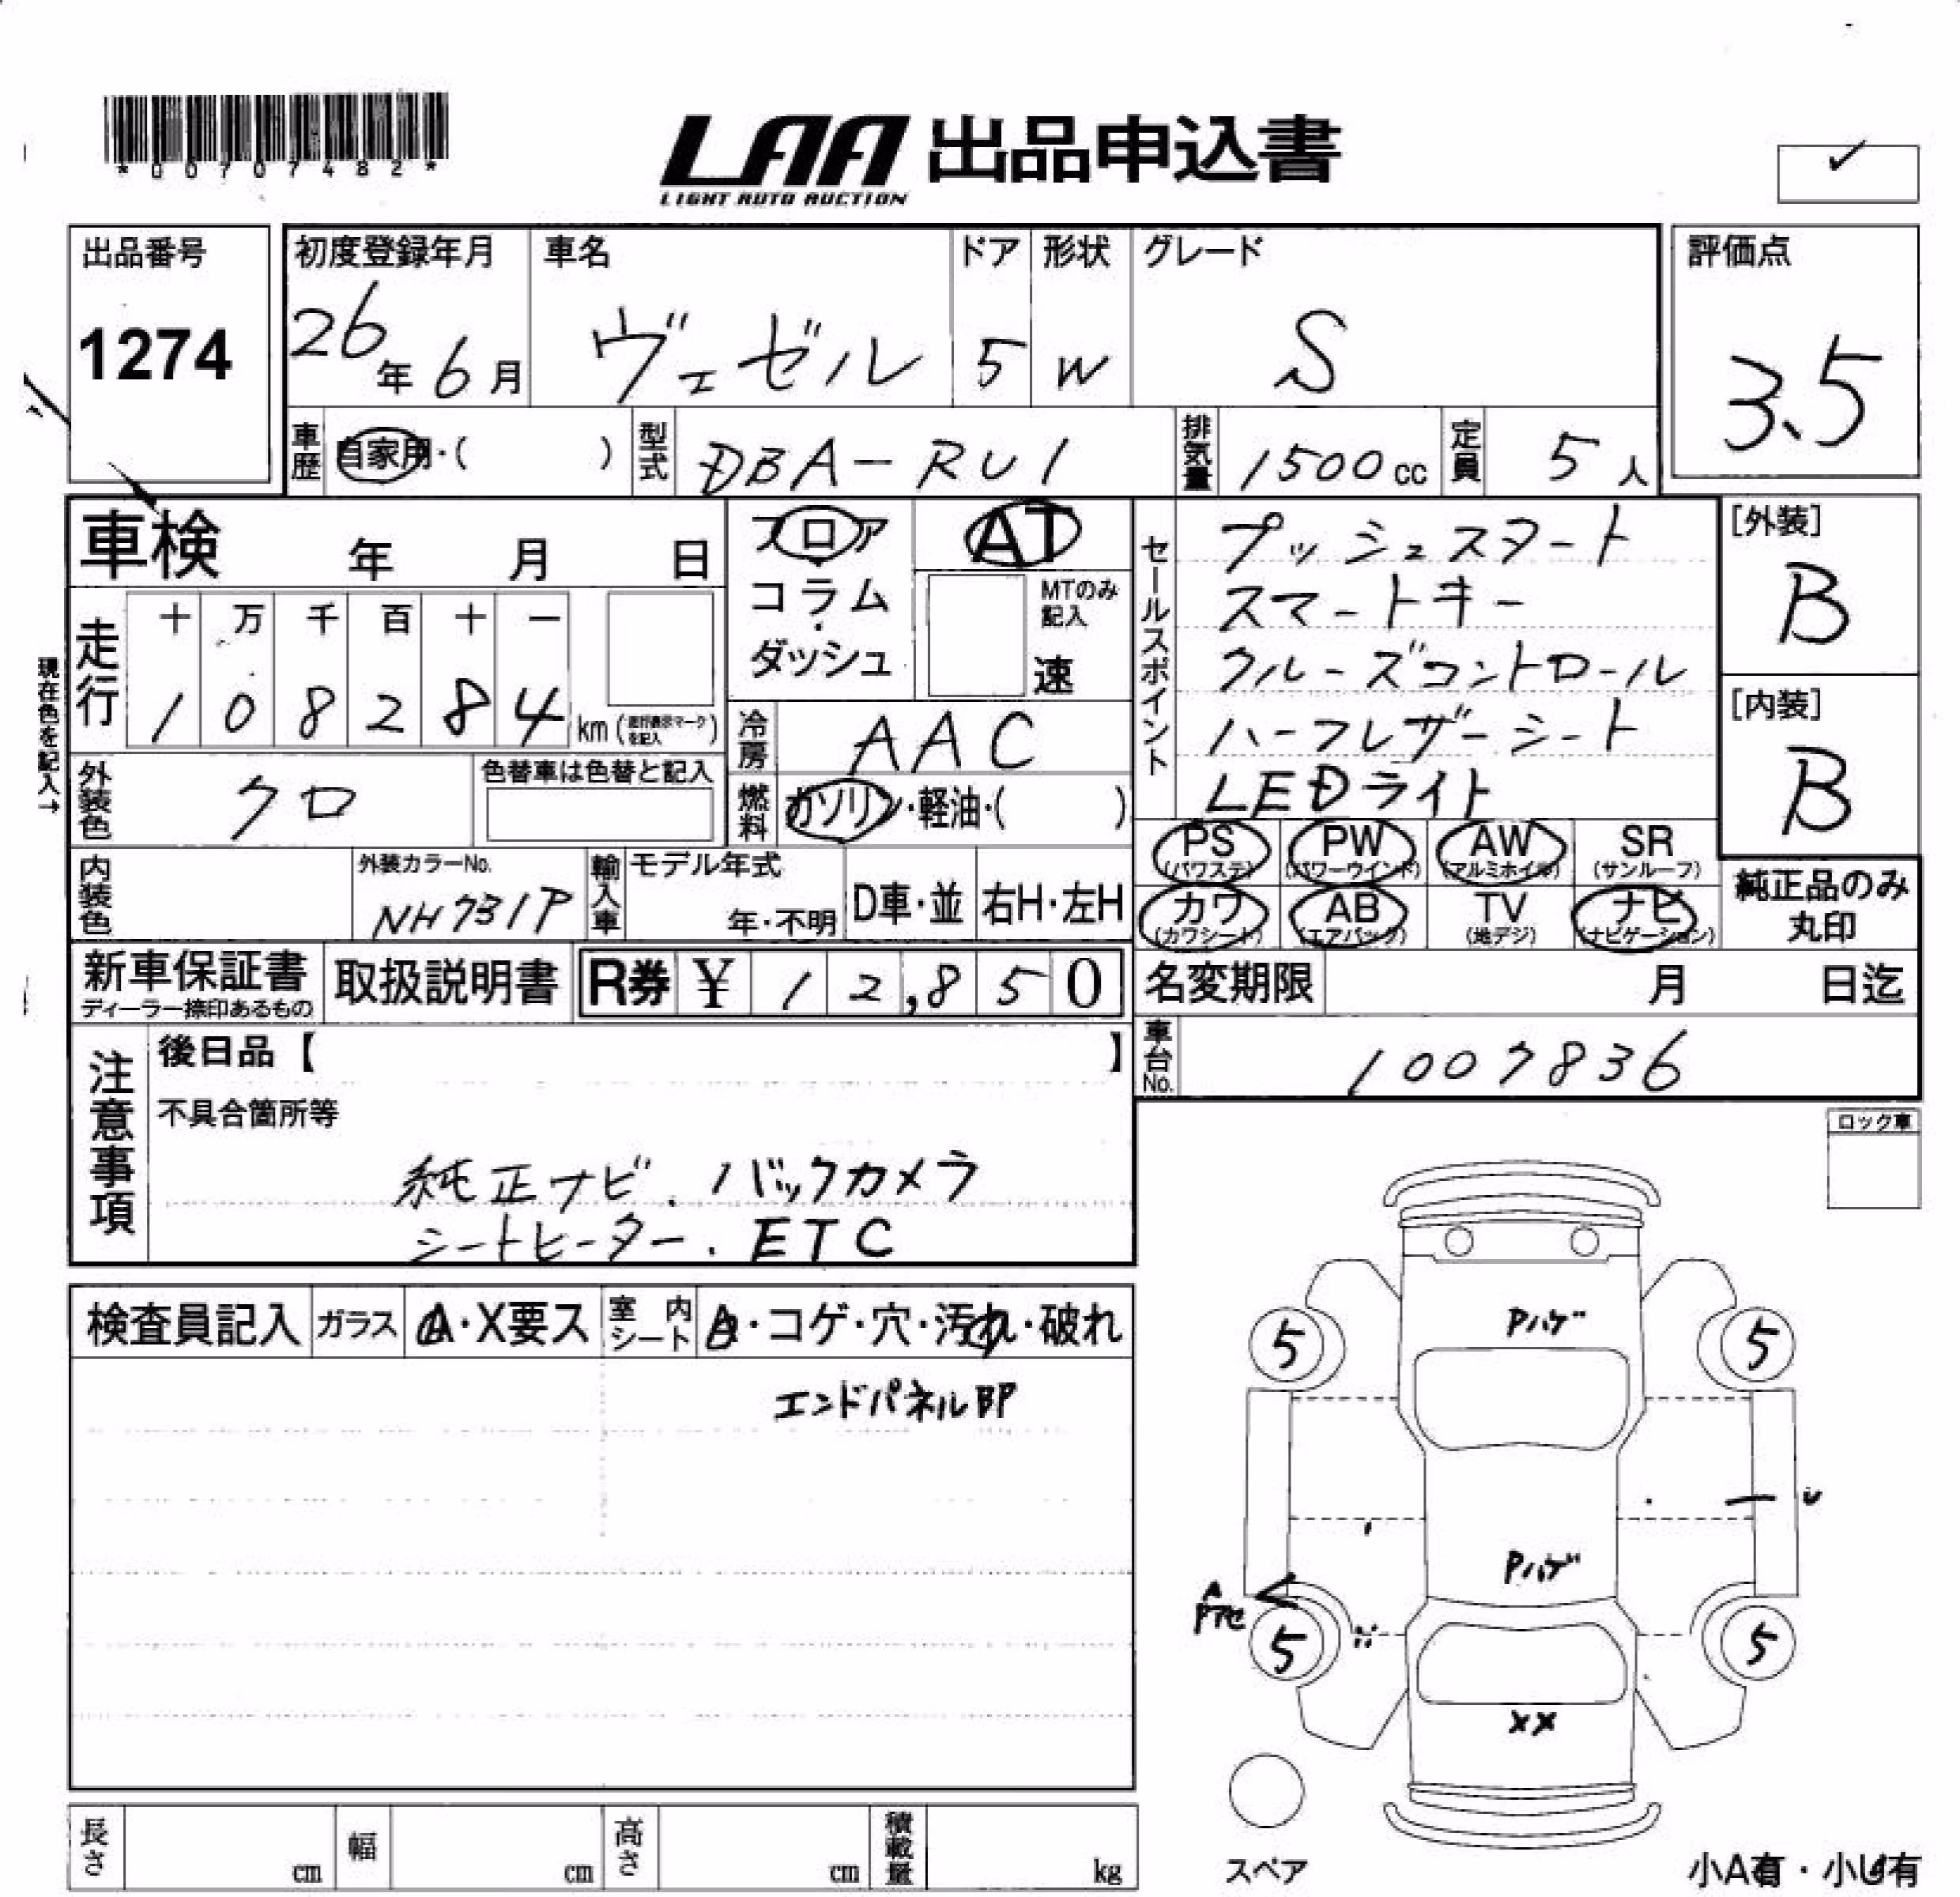 *00707482*
LAA 出品申込書
LIGHT AUTO AUCTION
✓
出品番号
1274
初度登録年月
26年6月
車名
ヴェゼル
ドア
5
形状
W
グレード
S
評価点
3.5
車歴 自家用・( )
型式 DBA-RU1
排気量 1500cc
定員 5人
車検 年 月 日
フロア
コラム
ダッシュ
AT
MTのみ記入
速
現在色を記入→
走行
十 万 千 百 十 一
1 0 8 2 8 4 km
冷房 AAC
外装色 クロ
色替車は色替と記入
燃料 ガソリン・軽油・( )
内装色
外装カラーNo.
NH731P
輸入車 モデル年式
年・不明
D車・並
右H・左H
セールスポイント
プッシュスタート
スマートキー
クルーズコントロール
ハーフレザーシート
LEDライト
PS (パワステ)
PW (パワーウインド)
AW (アルミホイル)
SR (サンルーフ)
カワ (カワシート)
AB (エアバック)
TV (地デジ)
ナビ (ナビゲーション)
[外装]
B
[内装]
B
純正品のみ
丸印
新車保証書
ディーラー捺印あるもの
取扱説明書
R券 ¥ 12,850
名変期限 月 日迄
車台No. 1007836
注意事項
後日品【 】
不具合箇所等
純正ナビ. バックカメラ
シートヒーター. ETC
ロック車
検査員記入 ガラス A・X要ス 室内シート A・コゲ・穴・汚れ・破れ
エンドパネル部
Pハゲ
5 5
Pハゲ
A
5 5
XX
スペア
長さ cm 幅 cm 高さ cm 積載量 kg
小A有・小U有